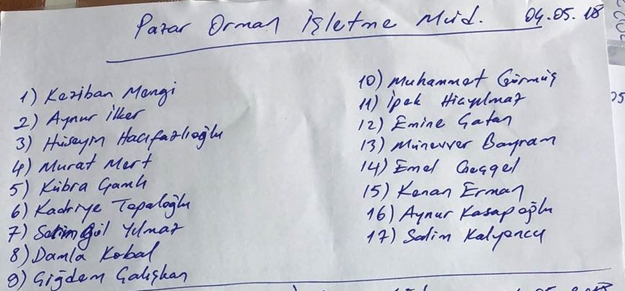 Pazar Orman İşletme Müd. 04.05.18
1) Keziban Mengi
2) Aynur İlker
3) Hüseyin Hacıfazlıoğlu
4) Murat Mert
5) Kübra Çamlı
6) Kadriye Topaloğlu
7) Yılmaz
8) Damla Kobal
9) Çiğdem Çalışkan
10) Muhammet Gürmüş
11) İpek
12) Emine
13) Münevver Bayram
14) Emel
15) Kenan Erman
16) Aynur Kasapoğlu
17) Salim Kalyoncu